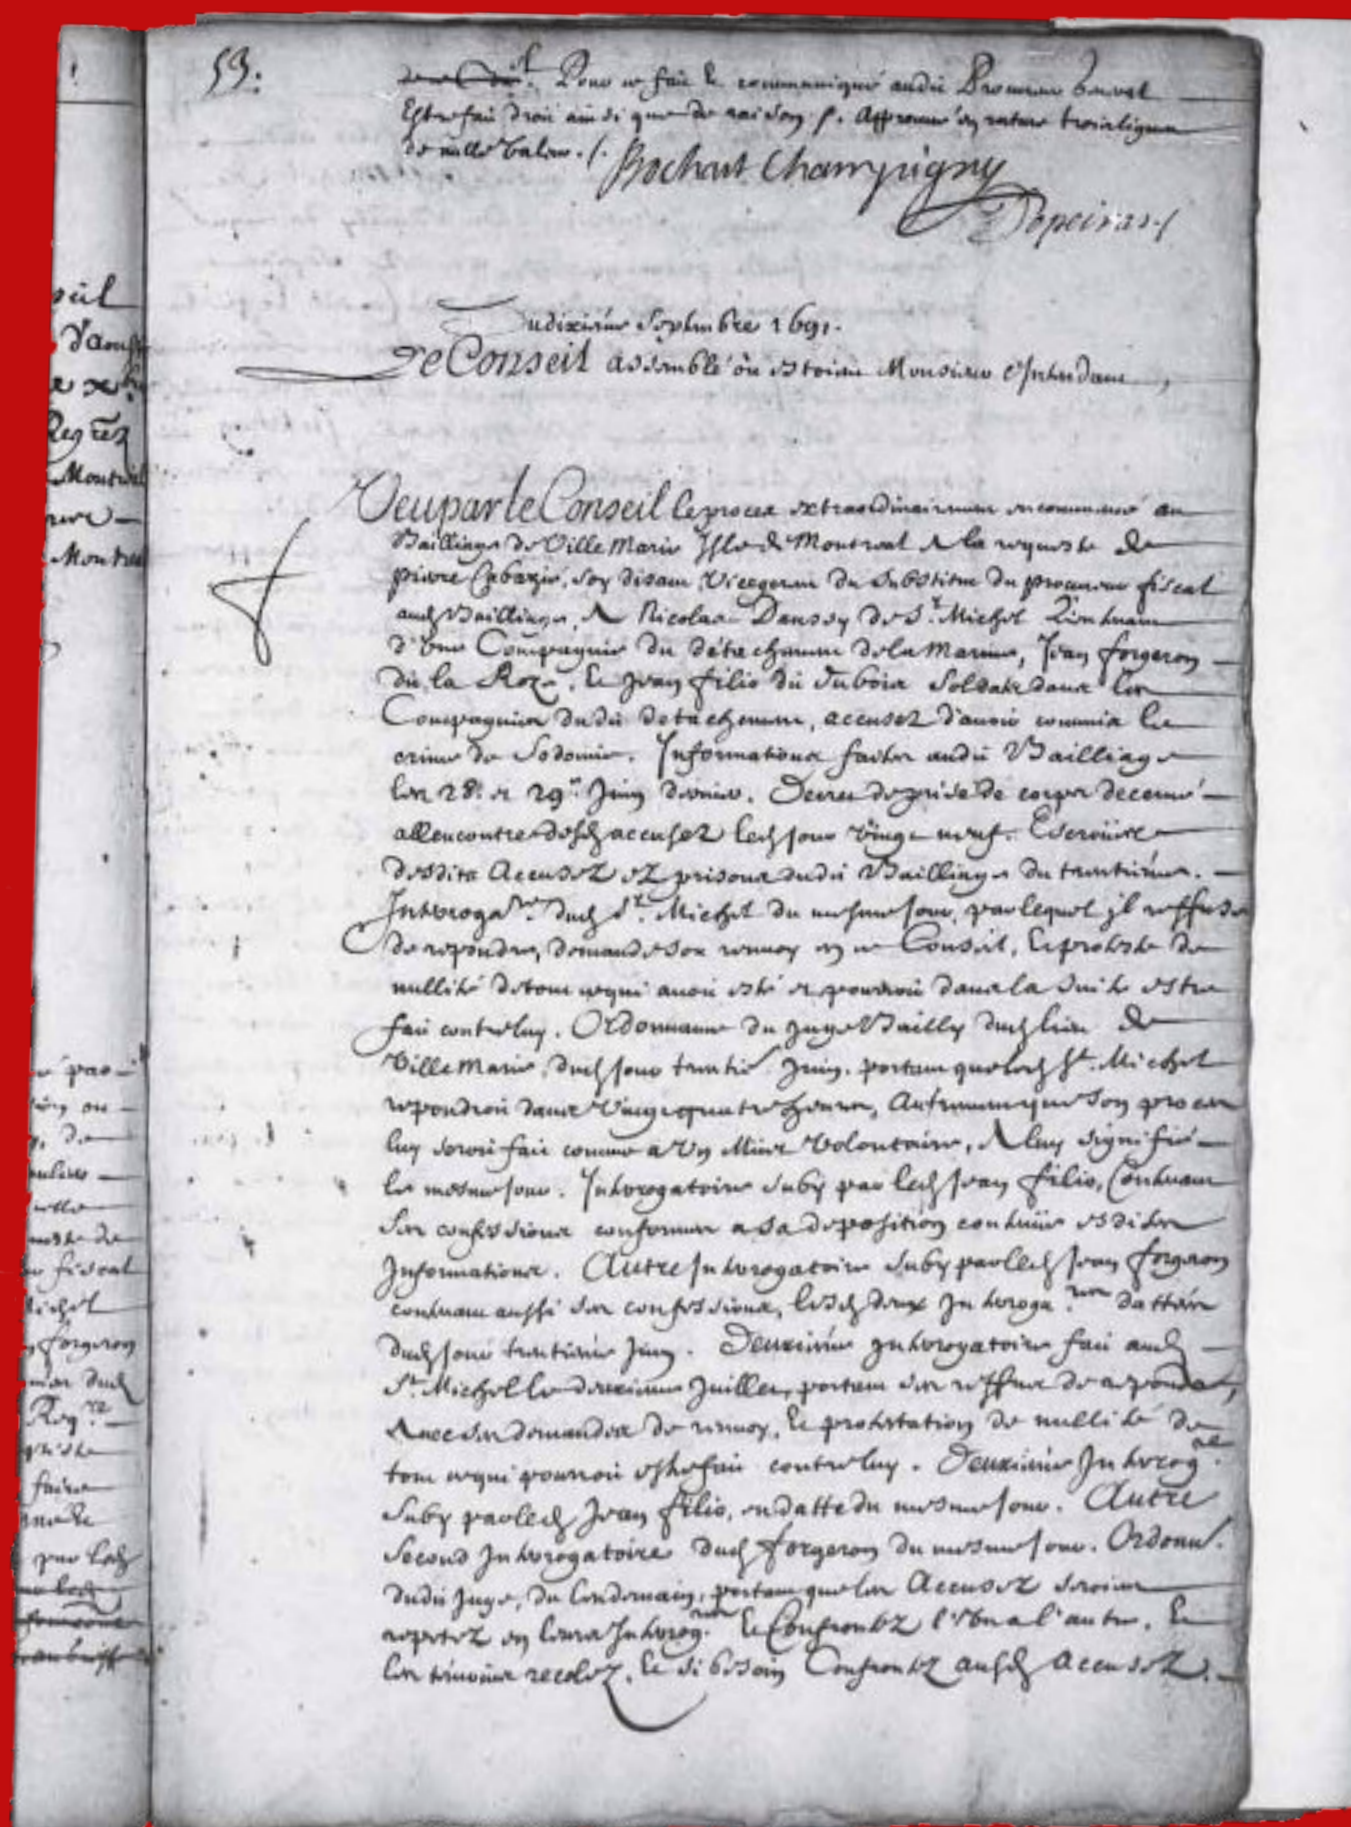 53.
Pour ce fait & communiqué audit Procureur General
Estre fait droit ainsi que de raison /. Approuvé en rature trois lignes
de nulle valeur. /.
Bochart Champigny
Depeiras /
Du dixiéme Septembre 1691.
Le Conseil assemblé où estoient Monsieur l'Intendant,
Veu par le Conseil le procez extraordinairement encommencé au
Bailliage de Ville Marie Isle de Montreal A la requeste de
pierre Cabazié, soy disant Vicegerent du Substitut du procureur fiscal
aud Bailliage, A Nicolas Daussy de St. Michel Lieutenant
d'Une Compagnie du détachement de la Marine, Jean forgeron
dit la Roze, Et Jean filio dit Dubois Soldats dans les
Compagnies dudit detachement, accusez d'avoir commis le
crime de Sodomie. Informations faites audit Bailliage
les 28e. et 29e. Juin dernier. Decret de prise de corps decerné
allencontre desd accusez led jour Vingt neuf. Escroüe
desdits Accusez ez prisons dudit Bailliage du trentiéme.
Interrogare. dud St. Michel du mesme jour, par lequel il reffuse
de repondre, demande son renvoy en ce Conseil, Et proteste de
nullité de tout ce qui avoit esté et pourroit dans la suite estre
fait contre luy. Ordonnance du Juge Bailly dud lieu de
Ville Marie, dud jour trente Juin. portant que led St. Michel
repondroit dans Vingt quatre heures, Autrement que son procez
luy seroit fait comme a Un Muet Volontaire, A luy signifié
le mesme jour. Interrogatoire suby par led Jean filio, Contenant
ses confessions conformes a sa deposition contenüe esdites
Informations. Autre Interrogatoire suby par led Jean forgeron
contenant aussi ses confessions, lesd deux Interrogares dattées
dud jour trentiéme Juin. Deuxiéme Interrogatoire fait aud
St. Michel le deuxieme Juillet, portant ses reffus de repondre,
Avec ses demandes de renvoy, Et protestation de nullité de
tout ce qui pourroit estre fait contre luy. Deuxiéme Interrogre.
suby par led Jean filio, en datte du mesme jour. Autre
Second Interrogatoire dud forgeron du mesme jour. Ordonce.
dudit Juge, du lendemain, portant que les Accusez seroient
repetez en leurs Interrogres. Et Confrontez l'Un a l'autre, Et
les témoins recolez, Et si besoin Confrontez ausd Accusez.